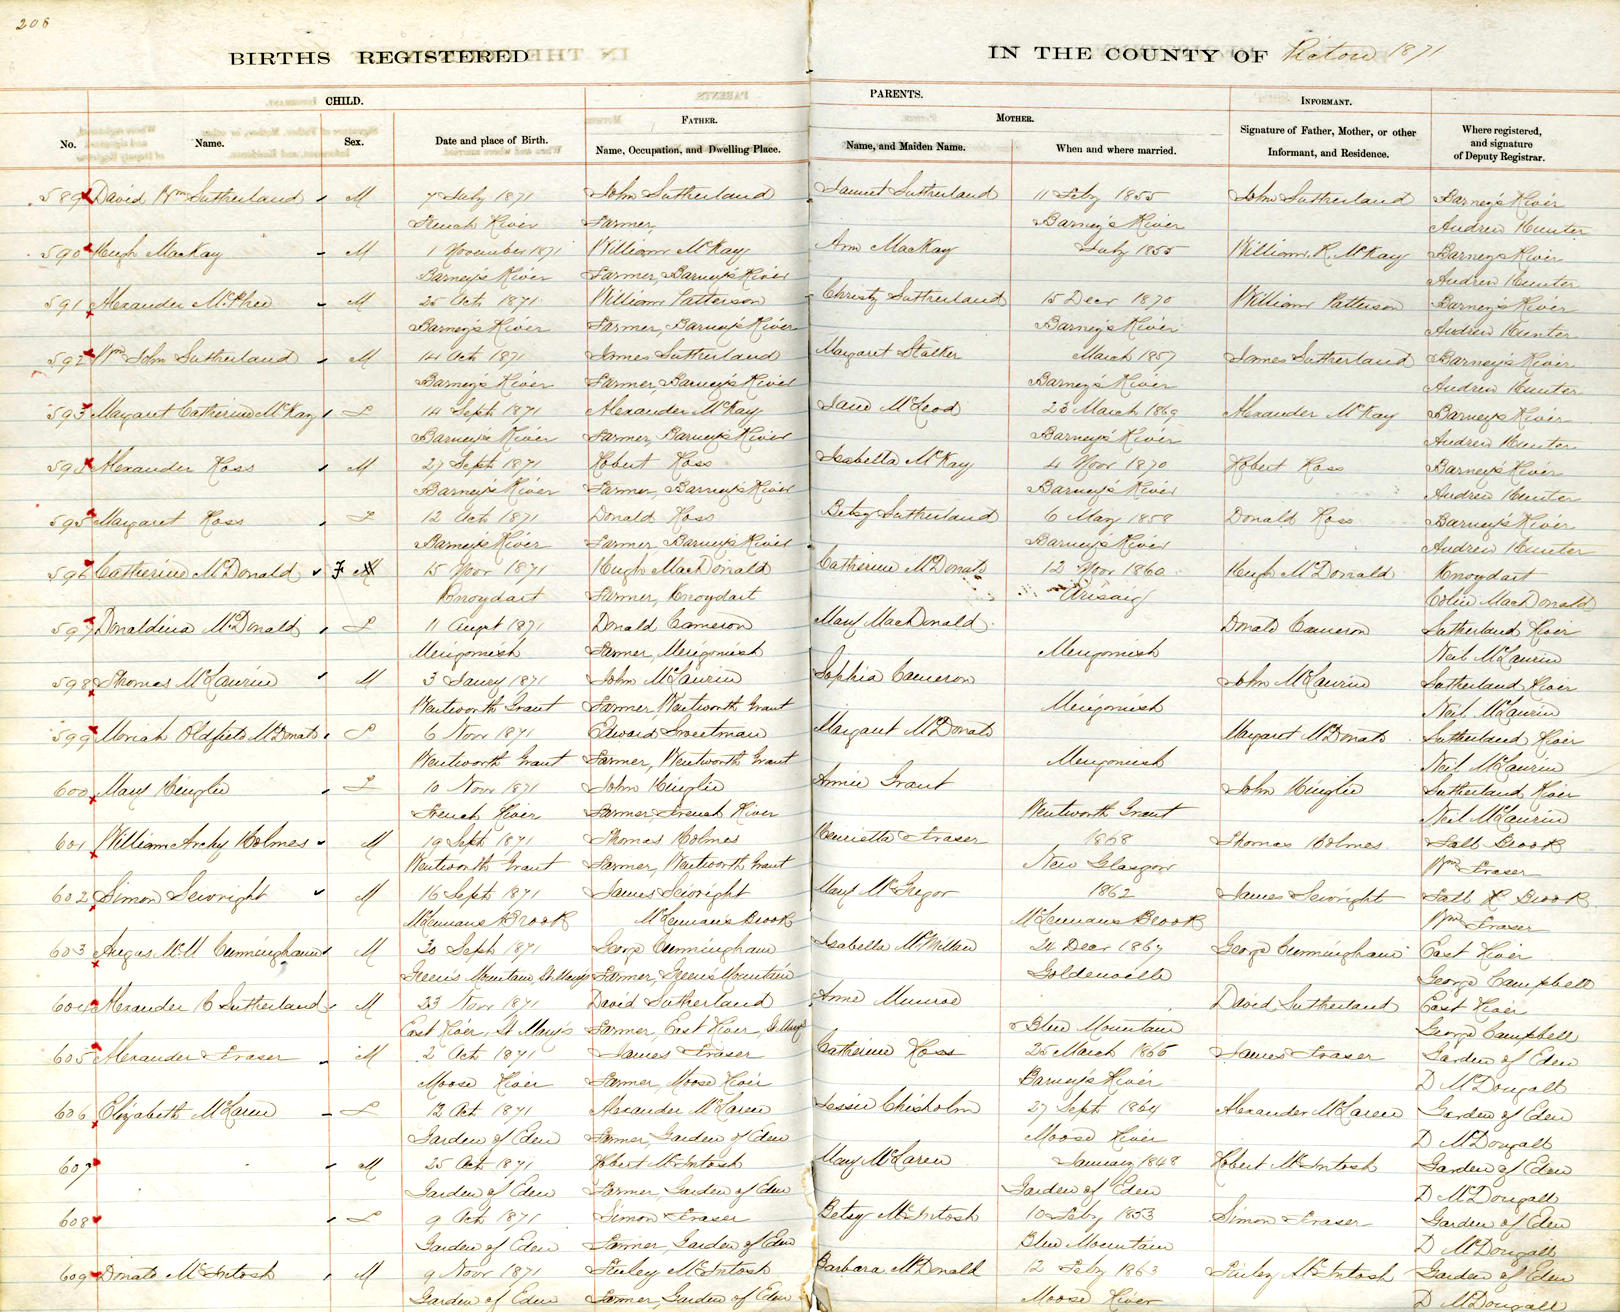 208
BIRTHS REGISTERED IN THE COUNTY OF Pictou 1871
CHILD. PARENTS. INFORMANT.
FATHER. MOTHER.
No. Name. Sex. Date and place of Birth. Name, Occupation, and Dwelling Place. Name, and Maiden Name. When and where married. Signature of Father, Mother, or other Informant, and Residence. Where registered, and signature of Deputy Registrar.
589 David Wm Sutherland M 7 July 1871 John Sutherland Sutherland 11 Feby 1855 John Sutherland Barney's River
French River Farmer, Barney's River Andrew Hunter
590 Hugh MacKay M 1 November 1871 William McKay Ann MacKay July 1855 William R. McKay Barney's River
Barney's River Farmer, Barney's River Andrew Hunter
591 Alexander McPhee M 25 Oct. 1871 William Patterson Christy Sutherland 15 Decr 1870 William Patterson Barney's River
Barney's River Farmer, Barney's River Barney's River Andrew Hunter
592 Wm John Sutherland M 14 Oct 1871 James Sutherland Margaret Stalker March 1857 James Sutherland Barney's River
Barney's River Farmer, Barney's River Barney's River Andrew Hunter
593 Margaret Catherine McKay F 14 Sept 1871 Alexander McKay Jane McLeod 23 March 1869 Alexander McKay Barney's River
Barney's River Farmer, Barney's River Barney's River Andrew Hunter
594 Alexander Ross M 27 Sept 1871 Robert Ross Isabella McKay 4 Novr 1870 Robert Ross Barney's River
Barney's River Farmer, Barney's River Barney's River Andrew Hunter
595 Margaret Ross F 12 Oct 1871 Donald Ross Betsy Sutherland 6 May 1858 Donald Ross Barney's River
Barney's River Farmer, Barney's River Barney's River Andrew Hunter
596 Catherine McDonald F M 15 Novr 1871 Hugh MacDonald Catherine McDonald 12 Novr 1860 Hugh McDonald Knoydart
Knoydart Farmer, Knoydart Arisaig Colin MacDonald
597 Donaldina McDonald F 11 Augt 1871 Donald Cameron Mary MacDonald Donald Cameron Sutherland River
Merigomish Farmer, Merigomish Merigomish Neil McLaurin
598 Thomas McLaurin M 3 Jany 1871 John McLaurin Sophia Cameron John McLaurin Sutherland River
Wentworth Grant Farmer, Wentworth Grant Merigomish Neil McLaurin
599 Moriah Oldfield McDonald F 6 Novr 1871 Edward Sweetman Margaret McDonald Margaret McDonald Sutherland River
Wentworth Grant Farmer, Wentworth Grant Merigomish Neil McLaurin
600 Mary F 10 Novr 1871 John Annie Grant John Sutherland River
French River Farmer French River Wentworth Grant Neil McLaurin
601 William Archy Holmes M 19 Sept 1871 Thomas Holmes Henrietta Fraser 1868 Thomas Holmes Salt Brook
Wentworth Grant Farmer, Wentworth Grant New Glasgow Wm Fraser
602 Simon Seivright M 16 Sept 1871 James Seivright Mary McGregor 1862 James Seivright Salt Brook
McLennans Brook McLennans Brook McLennans Brook Wm Fraser
603 Angus McM Cunningham M 30 Sept 1871 George Cunningham Isabella McMillan 24 Decr 1867 George Cunningham East River
Greens Mountain, St. Marys Farmer, Greens Mountain Goldenville George Campbell
604 Alexander C Sutherland M 23 Novr 1871 David Sutherland Anne Munroe David Sutherland East River
East River, St Mary's Farmer, East River, St Marys Blue Mountain George Campbell
605 Alexander Fraser M 2 Oct 1871 James Fraser Catherine Ross 25 March 1866 James Fraser Garden of Eden
Moose River Farmer, Moose River Barney's River D McDougall
606 Elizabeth McLaren F 12 Oct 1871 Alexander McLaren Jessie Chisholm 27 Sept 1864 Alexander McLaren Garden of Eden
Garden of Eden Farmer, Garden of Eden Moose River D McDougall
607 M 25 Oct 1871 Robert McIntosh Mary McLaren January 1848 Robert McIntosh Garden of Eden
Garden of Eden Farmer, Garden of Eden Garden of Eden D McDougall
608 F 9 Oct 1871 Simon Fraser Betsy McIntosh 10 Feby 1853 Simon Fraser Garden of Eden
Garden of Eden Farmer, Garden of Eden Blue Mountain D McDougall
609 Donald McIntosh M 9 Novr 1871 Finley McIntosh Barbara McDonald 12 Feby 1863 Finley McIntosh Garden of Eden
Garden of Eden Farmer, Garden of Eden Moose River D McDougall